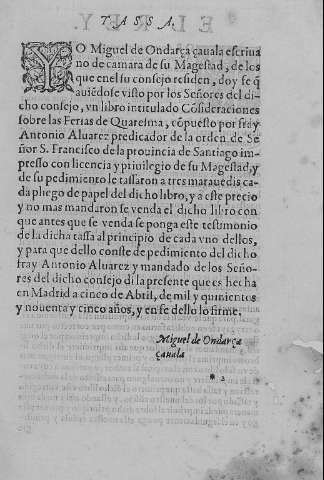 TASSA.
YO Miguel de Ondarça çauala escriua
no de camara de su Magestad, de los
que en el su consejo residen, doy fe q̃
auiẽdose visto por los Señores del di-
cho consejo, vn libro intitulado Cõsideraciones
sobre las Ferias de Quaresma, cõpuesto por fray
Antonio Aluarez predicador de la orden de Se
ñor S. Francisco de la prouincia de Santiago im-
presso con licencia y priuilegio de su Magestad, y
de su pedimiento le tassaron a tres marauedis ca-
da pliego de papel del dicho libro, y a este precio
y no mas mandaron se venda el dicho libro con
que antes que se venda se ponga este testimonio
de la dicha tassa al principio de cada vno dellos,
y para que dello conste de pedimiento del dicho
fray Antonio Aluarez y mandado de los Seño-
res del dicho consejo di la presente que es hecha
en Madrid a cinco de Abril, de mil y quinientos
y nouenta y cinco años, y en fe dello lo firme.
Miguel de Ondarça
çauala
* 2